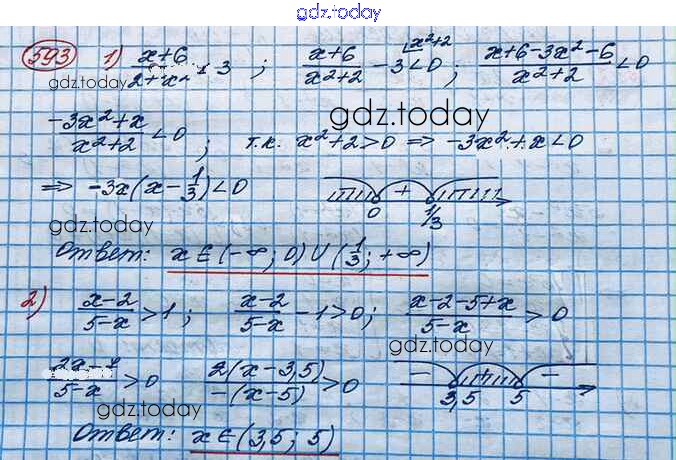 gdz.today
593 1) x+6 / 2+x² < 3 ; x+6 / x²+2 − 3 < 0 ; x+6−3x²−6 / x²+2 < 0
gdz.today
−3x²+x / x²+2 < 0 ; т.к. x²+2>0 ⇒ −3x²+x<0
gdz.today
⇒ −3x(x−1/3)<0 + 0 1/3
gdz.today
Ответ: x∈(−∞; 0)∪(1/3; +∞)
2) x−2 / 5−x > 1 ; x−2 / 5−x − 1 > 0 ; x−2−5+x / 5−x > 0
gdz.today
5−x > 0 2(x−3,5) / −(x−5) > 0 − + − 3,5 5
gdz.today
Ответ: x∈(3,5; 5)